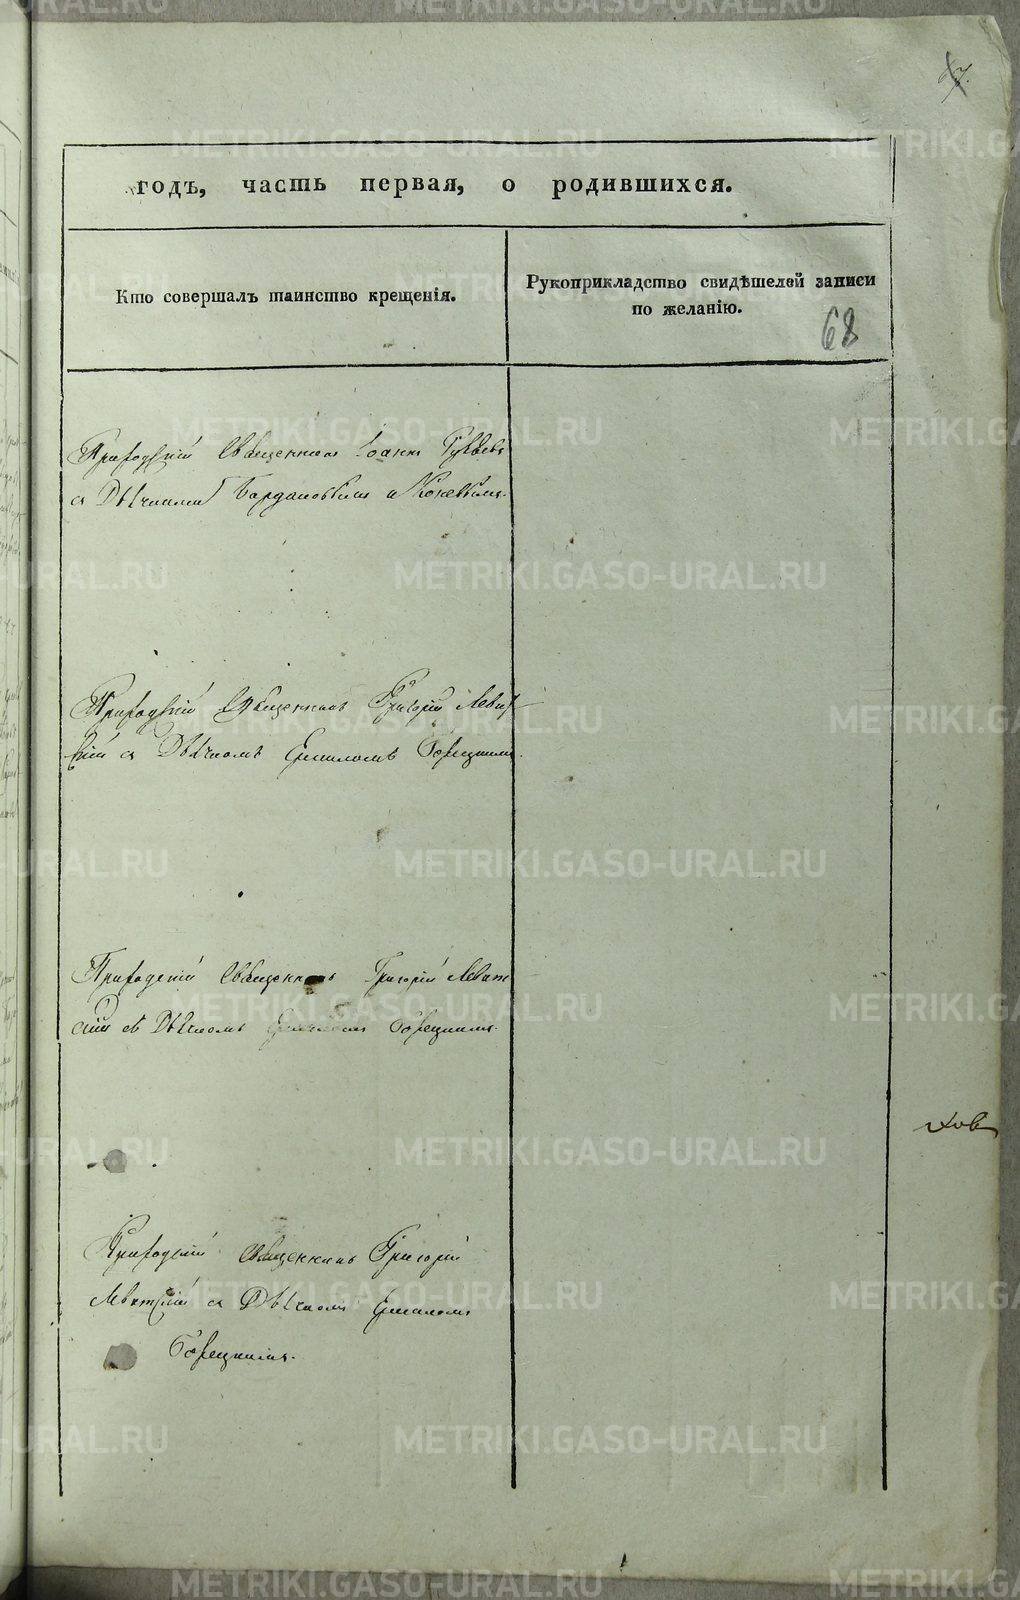 67.
годъ, часть первая, о родившихся.
Кто совершалъ таинство крещенія.
Рукоприкладство свидѣтелей записи
по желанію.
68
Приходскій Священникъ Іоаннъ
съ Дьячками и
Приходскій Священникъ Григорій Левит
скій съ Дьячкомъ Ермиломъ Борецкимъ.
Приходскій Священникъ Григорій Левит
скій съ Дьячкомъ Ермиломъ Борецкимъ.
Приходскій Священникъ Григорій
Левитскій съ Дьячкомъ Ермиломъ
Борецкимъ.
METRIKI.GASO-URAL.RU